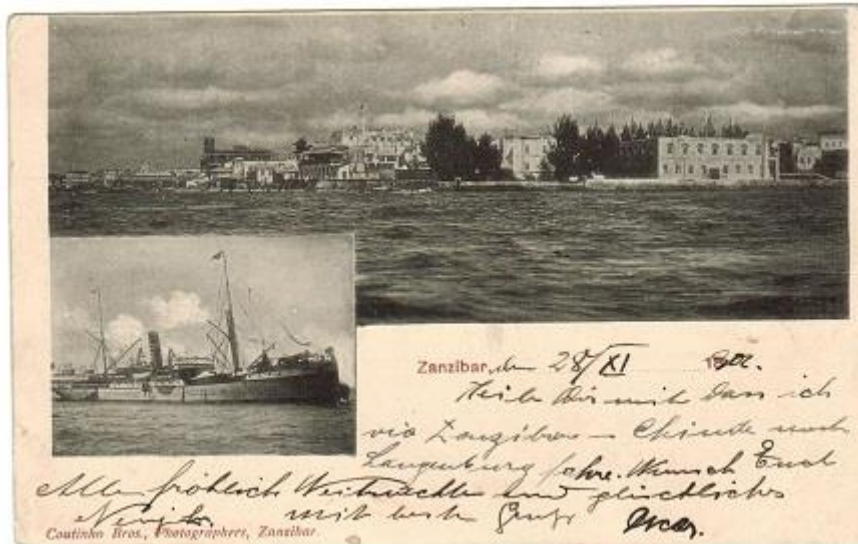 Zanzibar, den 28/XI 190
Teile Dir mit dass ich
via Zanzibar – Chinde nach
Langenburg fahre. Wünsch Euch
Alle fröhlich Weihnachten und glückliches
Neujahr mit besten Gruss Oscar.
Coutinho Bros., Photographers, Zanzibar.